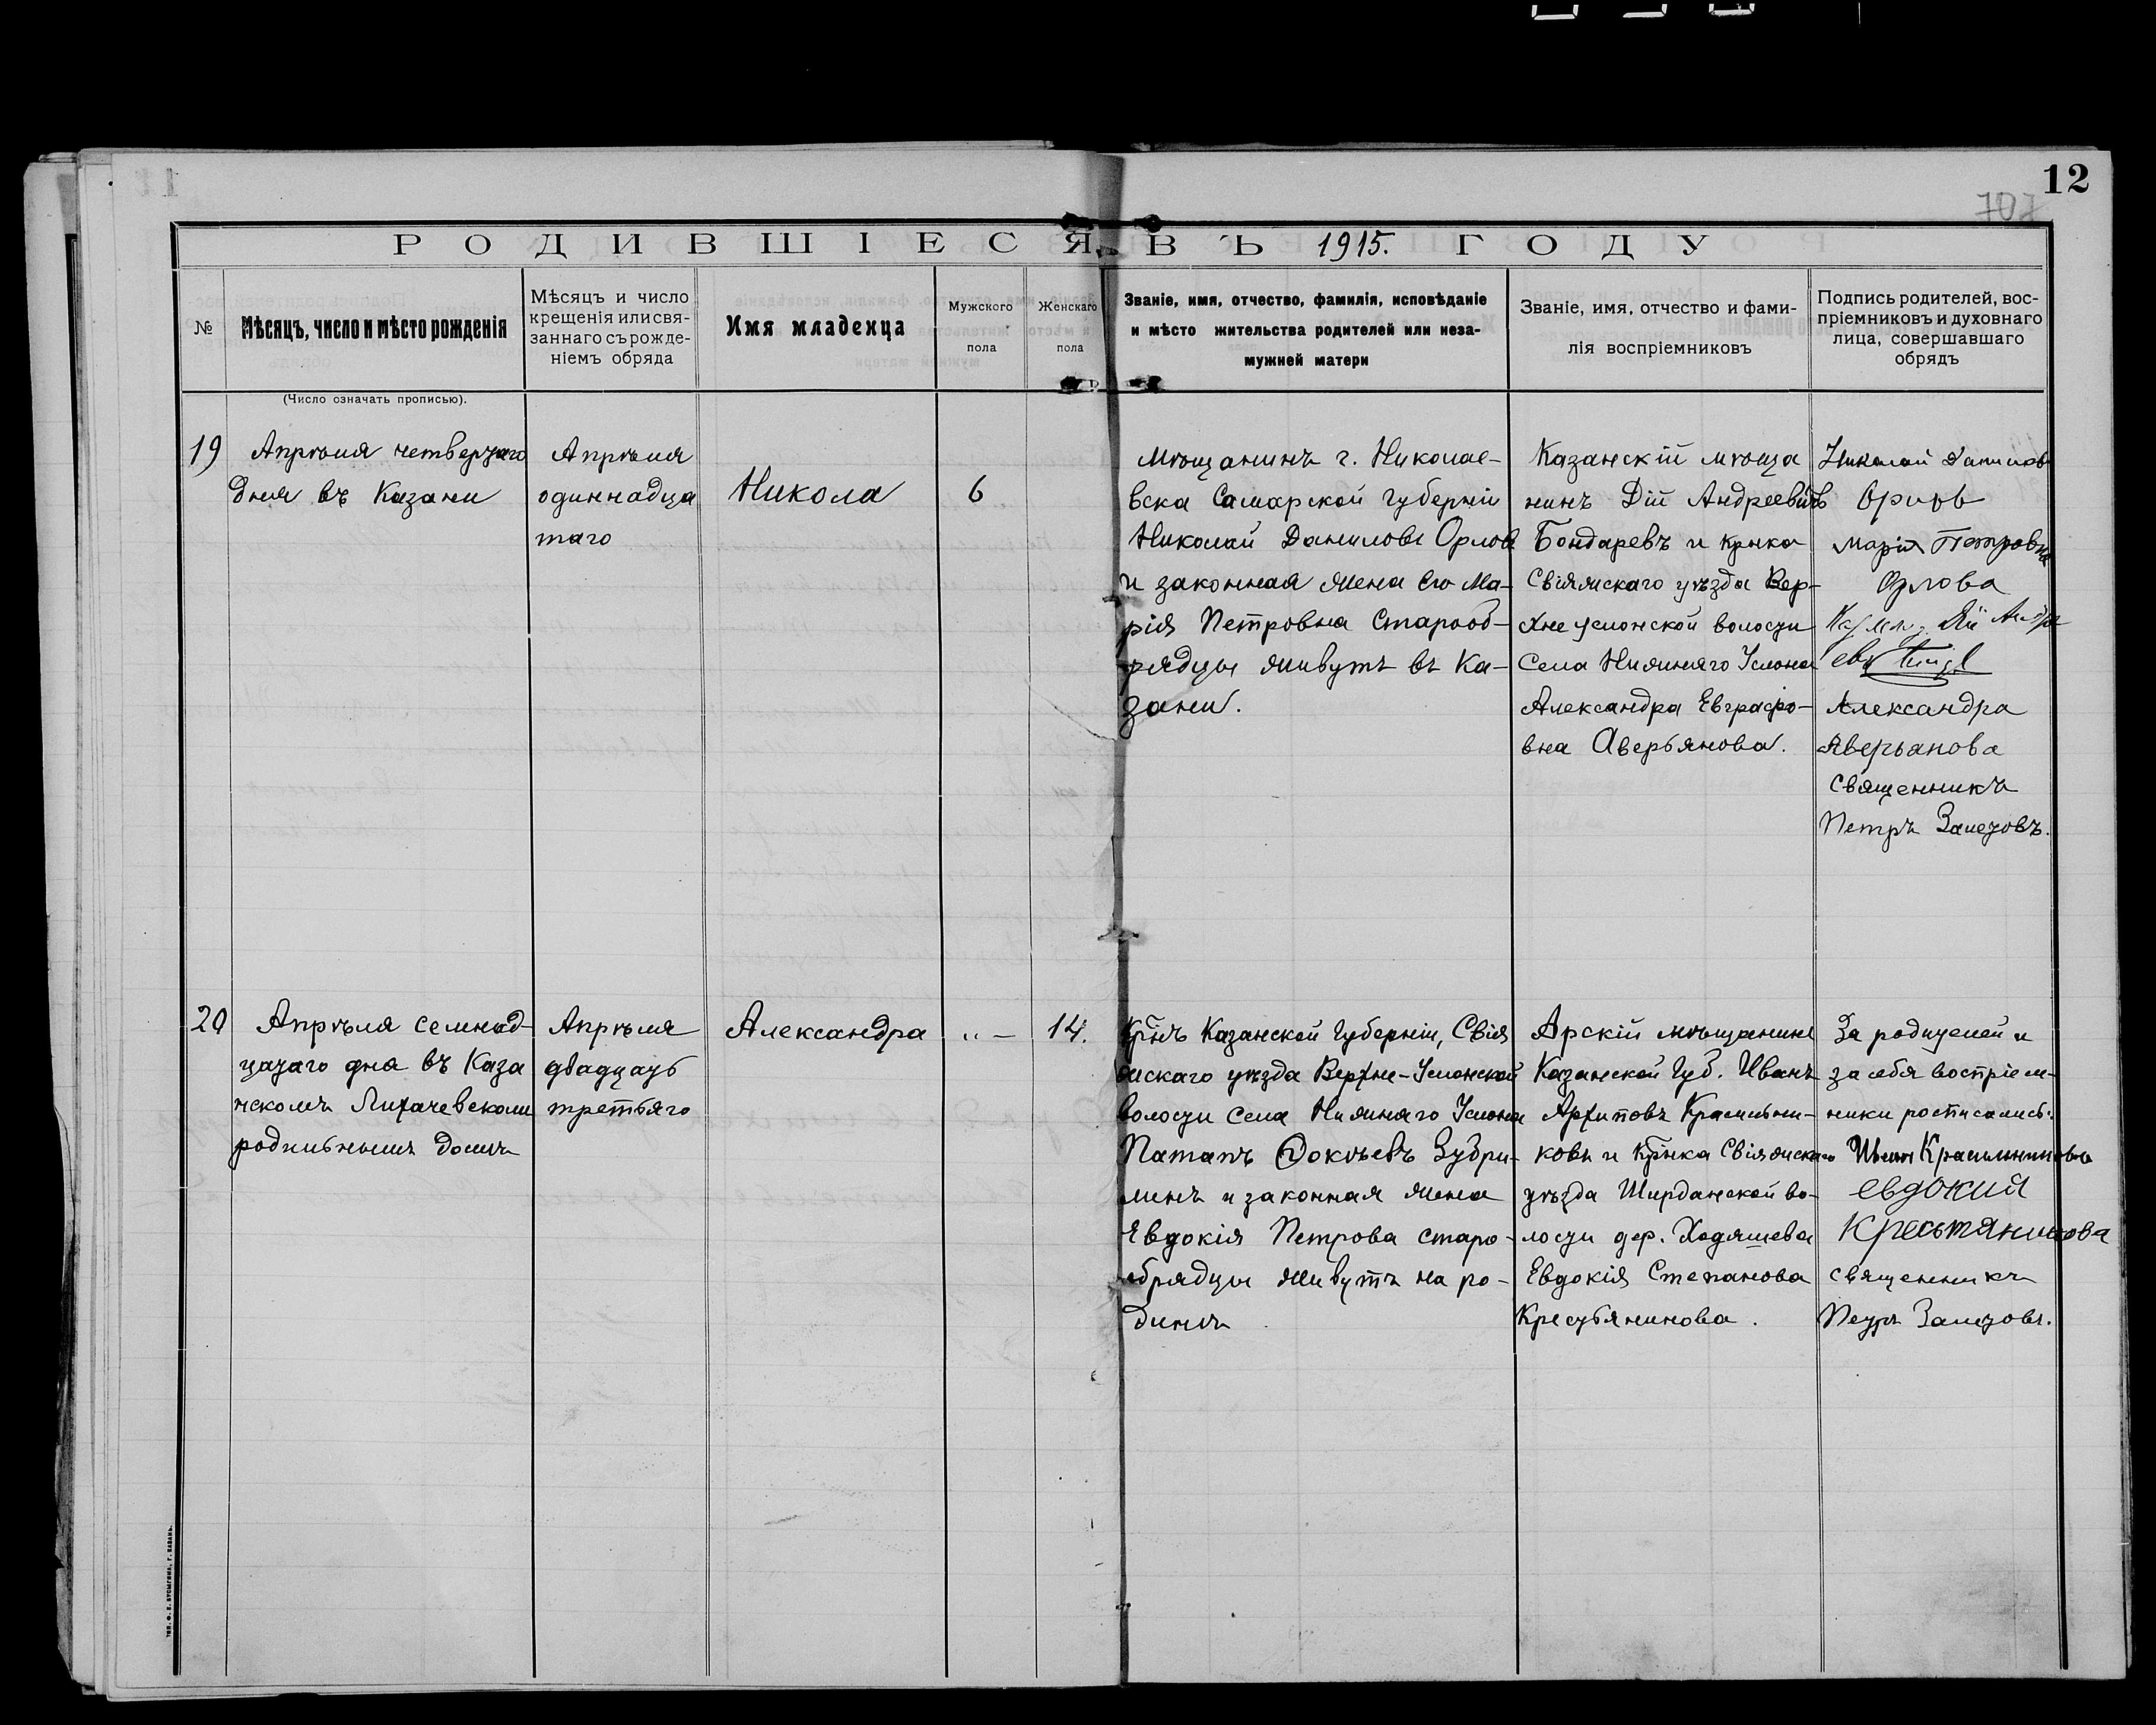 12
707
РОДИВШІЕСЯ ВЪ 1915. ГОДУ
№
Мѣсяцъ, число и мѣсто рожденія
Мѣсяцъ и число
крещенія или свя-
заннаго съ рожде-
ніемъ обряда
Имя младенца
Мужского
пола
Женскаго
пола
Званіе, имя, отчество, фамилія, исповѣданіе
и мѣсто жительства родителей или неза-
мужней матери
Званіе, имя, отчество и фами-
лія воспріемниковъ
Подпись родителей, вос-
пріемниковъ и духовнаго
лица, совершавшаго
обрядъ
(Число означать прописью).
19
Апрѣля четвертаго
дня въ Казани
Апрѣля
одиннадца
таго
Никола
6
Мѣщанинъ г. Николае-
вска Самарской губерніи
Николай Даниловъ Орловъ
и законная жена его Ма-
рія Петровна старооб-
рядцы живутъ въ Ка-
зани.
Казанскій мѣща
нинъ Дій Андреевичъ
Бондаревъ и кр-нка
Свіяжскаго уѣзда Вер-
хне Услонской волости
села Нижняго Услона
Александра Евграфо-
вна Аверьянова.
Николай Данилов
Орловъ
Марія Петровна
Орлова
Дій Андре
Александра
Аверьанова
священникъ
Петръ Залетовъ.
20
Апрѣля семнад-
цатаго дня въ Каза
нскомъ Лихачевскомъ
родильномъ домѣ
Апрѣля
двадцать
третьяго
Александра
„ —
14.
Кр-нъ Казанской губерніи, Свія
жскаго уѣзда Верхне-Услонской
волости села Нижняго Услона
Патапъ Фокѣевъ Зубри-
линъ и законная жена
Евдокія Петрова старо-
обрядцы живутъ на ро-
динѣ
Арскій мѣщанинъ
Казанской губ. Иванъ
Архиповъ Красильни-
ковъ и кр-нка Свіяжскаго
уѣзда Ширданской во-
лости дер. Ходяшева
Евдокія Степанова
Крестьянинова.
За родителей и
за себя воспріем-
ники росписались:
Иванъ Красильниковъ
евдокий
Кресьтянинова
священникъ
Петръ Залетовъ.
ТИП. Ф. П. БУСЫГИНА, Г. КАЗАНЬ.